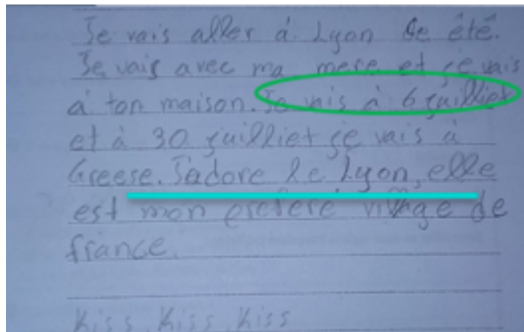 Je vais aller à Lyon ce été.
Je vais avec ma mere et je vais
à ton maison. Je vais à 6 juilliet
et à 30 juilliet je vais à
Greese. J'adore le Lyon, elle
est mon prefere village de
france.
Kiss Kiss Kiss